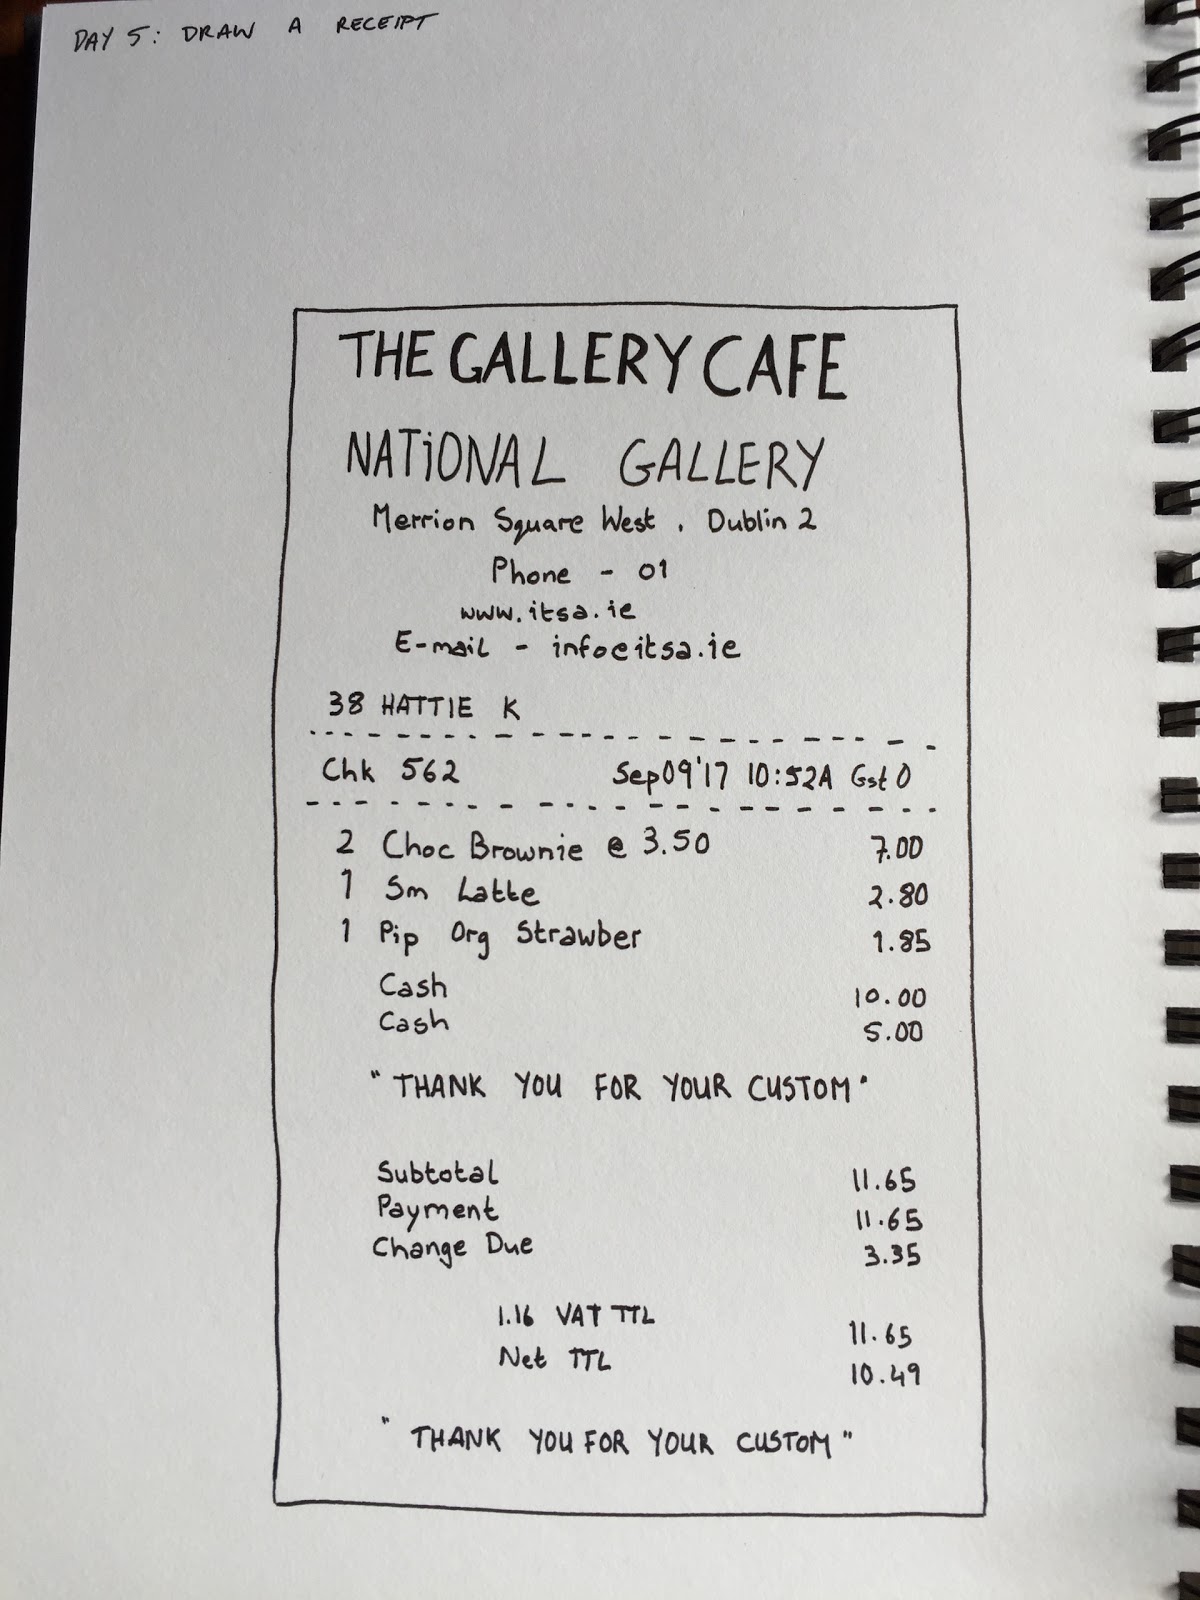 DAY 5: DRAW A RECEIPT
THE GALLERY CAFE
NATiONAL GALLERY
Merrion Square West , Dublin 2
Phone - 01
www.itsa.ie
E-mail - info@itsa.ie
38 HATTIE K
Chk 562 Sep09'17 10:52A Gst 0
2 Choc Brownie @ 3.50 7.00
1 Sm Latte 2.80
1 Pip Org Strawber 1.85
Cash 10.00
Cash 5.00
"THANK YOU FOR YOUR CUSTOM"
Subtotal 11.65
Payment 11.65
Change Due 3.35
1.16 VAT TTL 11.65
Net TTL 10.49
"THANK YOU FOR YOUR CUSTOM"